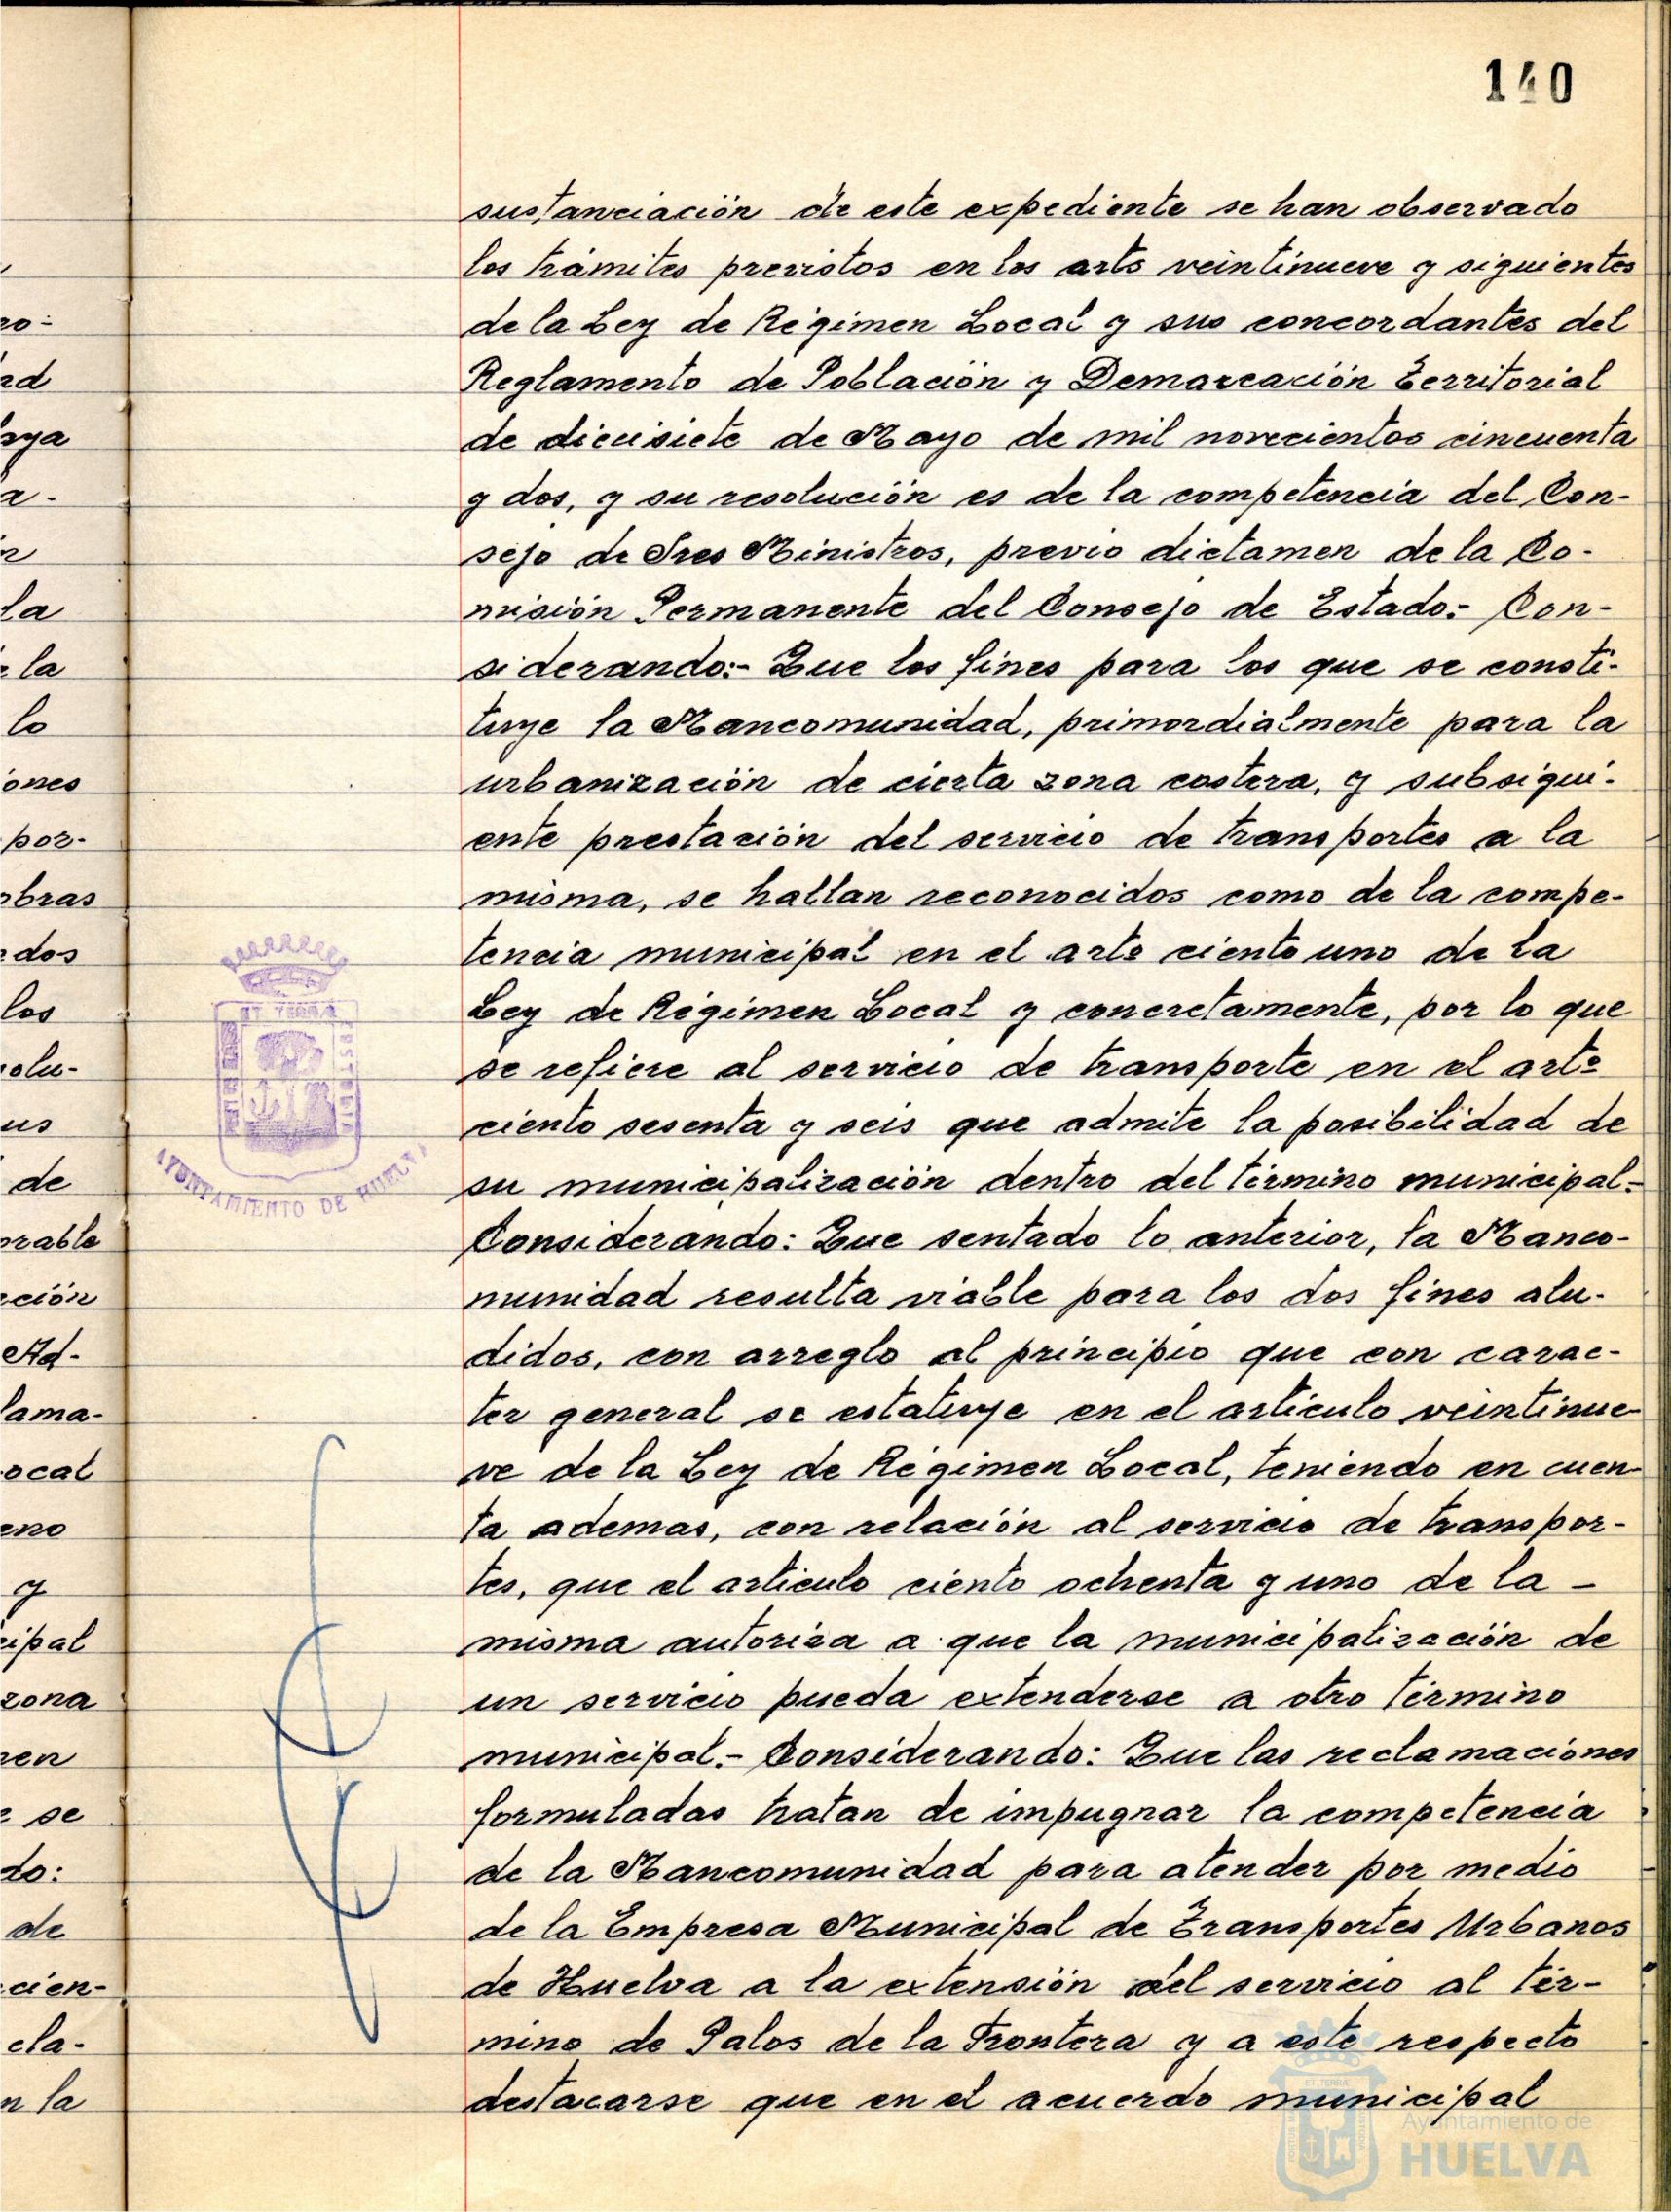 140
sustanciación de este expediente se han observado
los trámites previstos en los arts veintinueve y siguientes
de la Ley de Régimen Local y sus concordantes del
Reglamento de Población y Demarcación Territorial
de diecisiete de Mayo de mil novecientos cincuenta
y dos, y su resolución es de la competencia del Con-
sejo de Sres Ministros, previo dictamen de la Co-
misión Permanente del Consejo de Estado:- Con-
siderando:- Que los fines para los que se consti-
tuye la Mancomunidad, primordialmente para la
urbanización de cierta zona costera, y subsigui-
ente prestación del servicio de transportes a la
misma, se hallan reconocidos como de la compe-
tencia municipal en el artº ciento uno de la
Ley de Régimen Local y concretamente, por lo que
se refiere al servicio de transporte en el artº
ciento sesenta y seis que admite la posibilidad de
su municipalización dentro del término municipal.-
Considerando: Que sentado lo anterior, la Manco-
munidad resulta viable para los dos fines alu-
didos, con arreglo al principio que con carac-
ter general se estatuye en el artículo veintinue-
ve de la Ley de Régimen Local, teniendo en cuen-
ta ademas, con relación al servicio de transpor-
tes, que el artículo ciento ochenta y uno de la -
misma autoriza a que la municipalización de
un servicio pueda extenderse a otro término
municipal.- Considerando: Que las reclamaciones
formuladas tratan de impugnar la competencia
de la Mancomunidad para atender por medio
de la Empresa Municipal de Transportes Urbanos
de Huelva a la extensión del servicio al tér-
mino de Palos de la Frontera y a este respecto
destacarse que en el acuerdo municipal
ET TERRA
AYUNTAMIENTO DE HUELVA
Ayuntamiento de
HUELVA